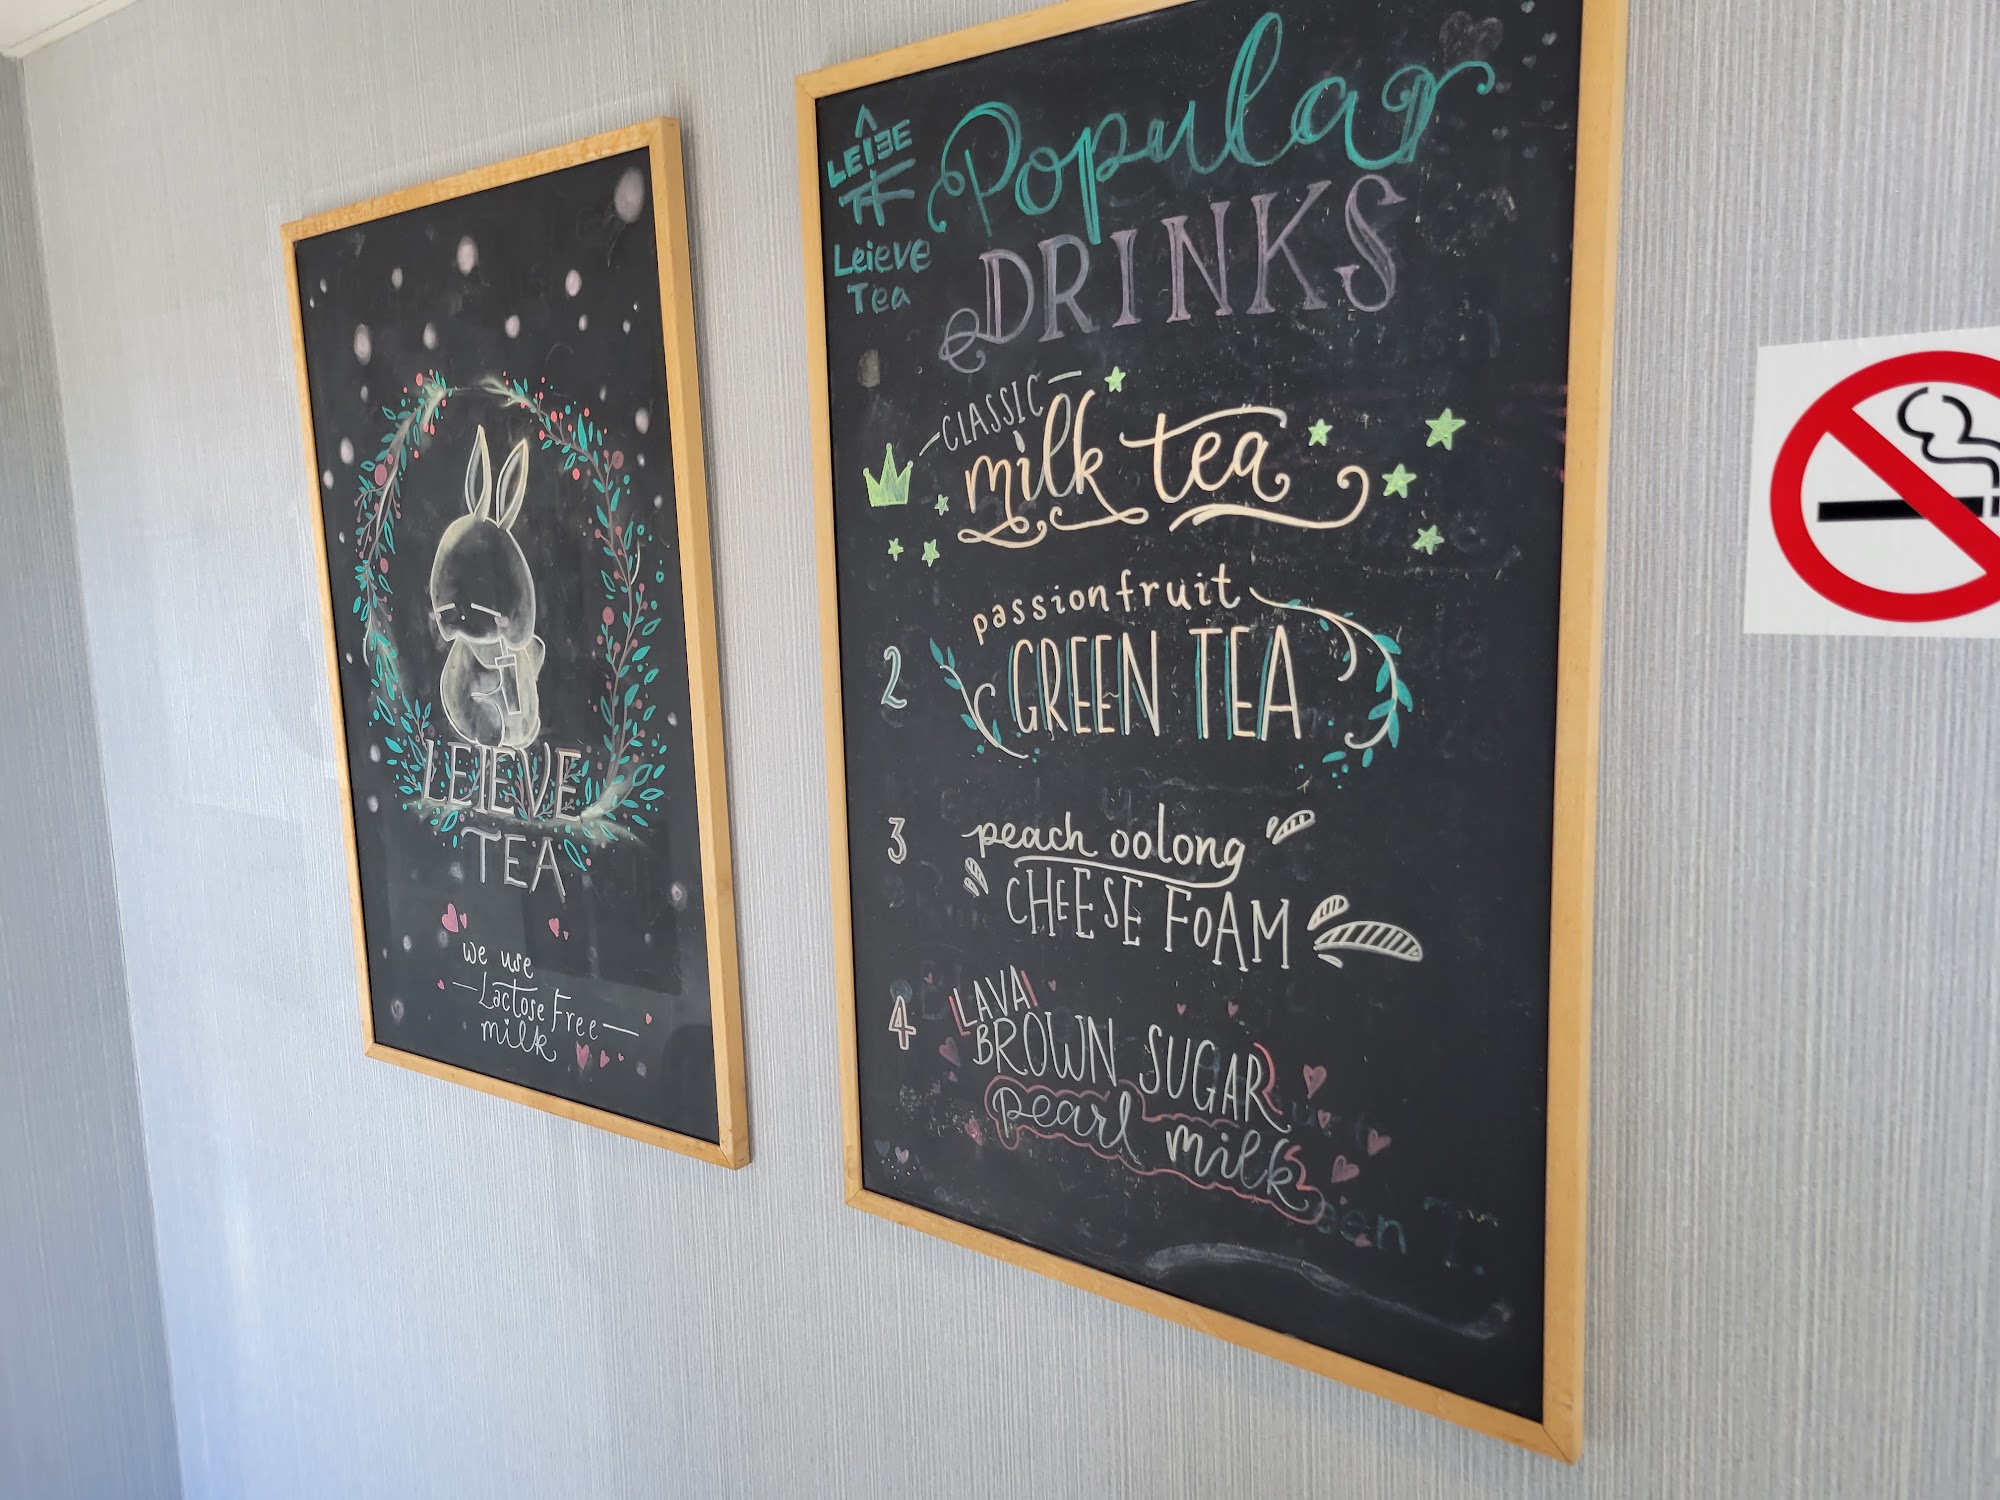 LEIEVE
TEA
we use
Lactose Free
milk
Leieve
Tea
Popular
DRINKS
CLASSIC
milk tea
2
passionfruit
GREEN TEA
3
peach oolong
CHEESE FOAM
4
LAVA
BROWN SUGAR
pearl milk